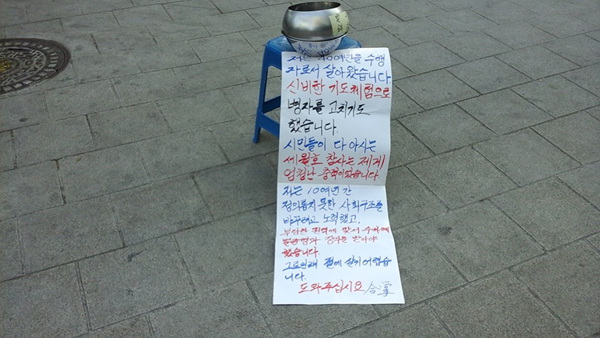 저는 30여년을 수행
자로서 살아왔습니다
신비한 기도체험으로
병자를 고치기도
했습니다.
시민들이 다 아시는
세월호 참사는 제게
엄청난 충격이었습니다
저는 10여년 간
정의롭지 못한 사회구조를
바꾸려고 노력했고.
부당한 권력에 맞서
했습니다
그로인해 절에 살기 어렵습
니다.
도와주십시요 合掌